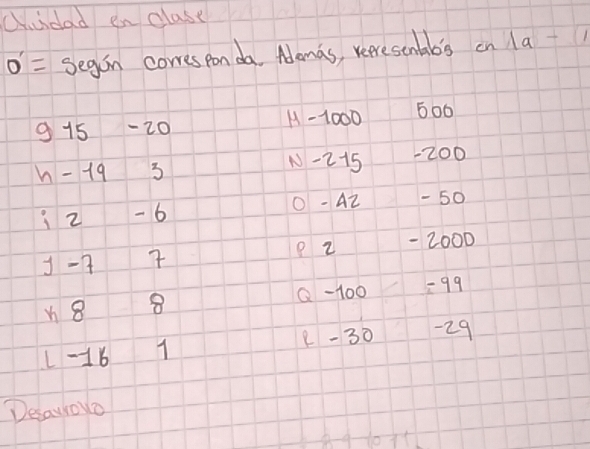 en clase
ó = Según corresponda. Además, represéntalos en la
g 15 -20
h -19 3
i 2 -6
J -7 7
K 8 8
L -16 1
M -1000 500
N -215 -200
O -42 -50
P 2 -2000
Q -100 -99
R -30 -29
Desarrollo